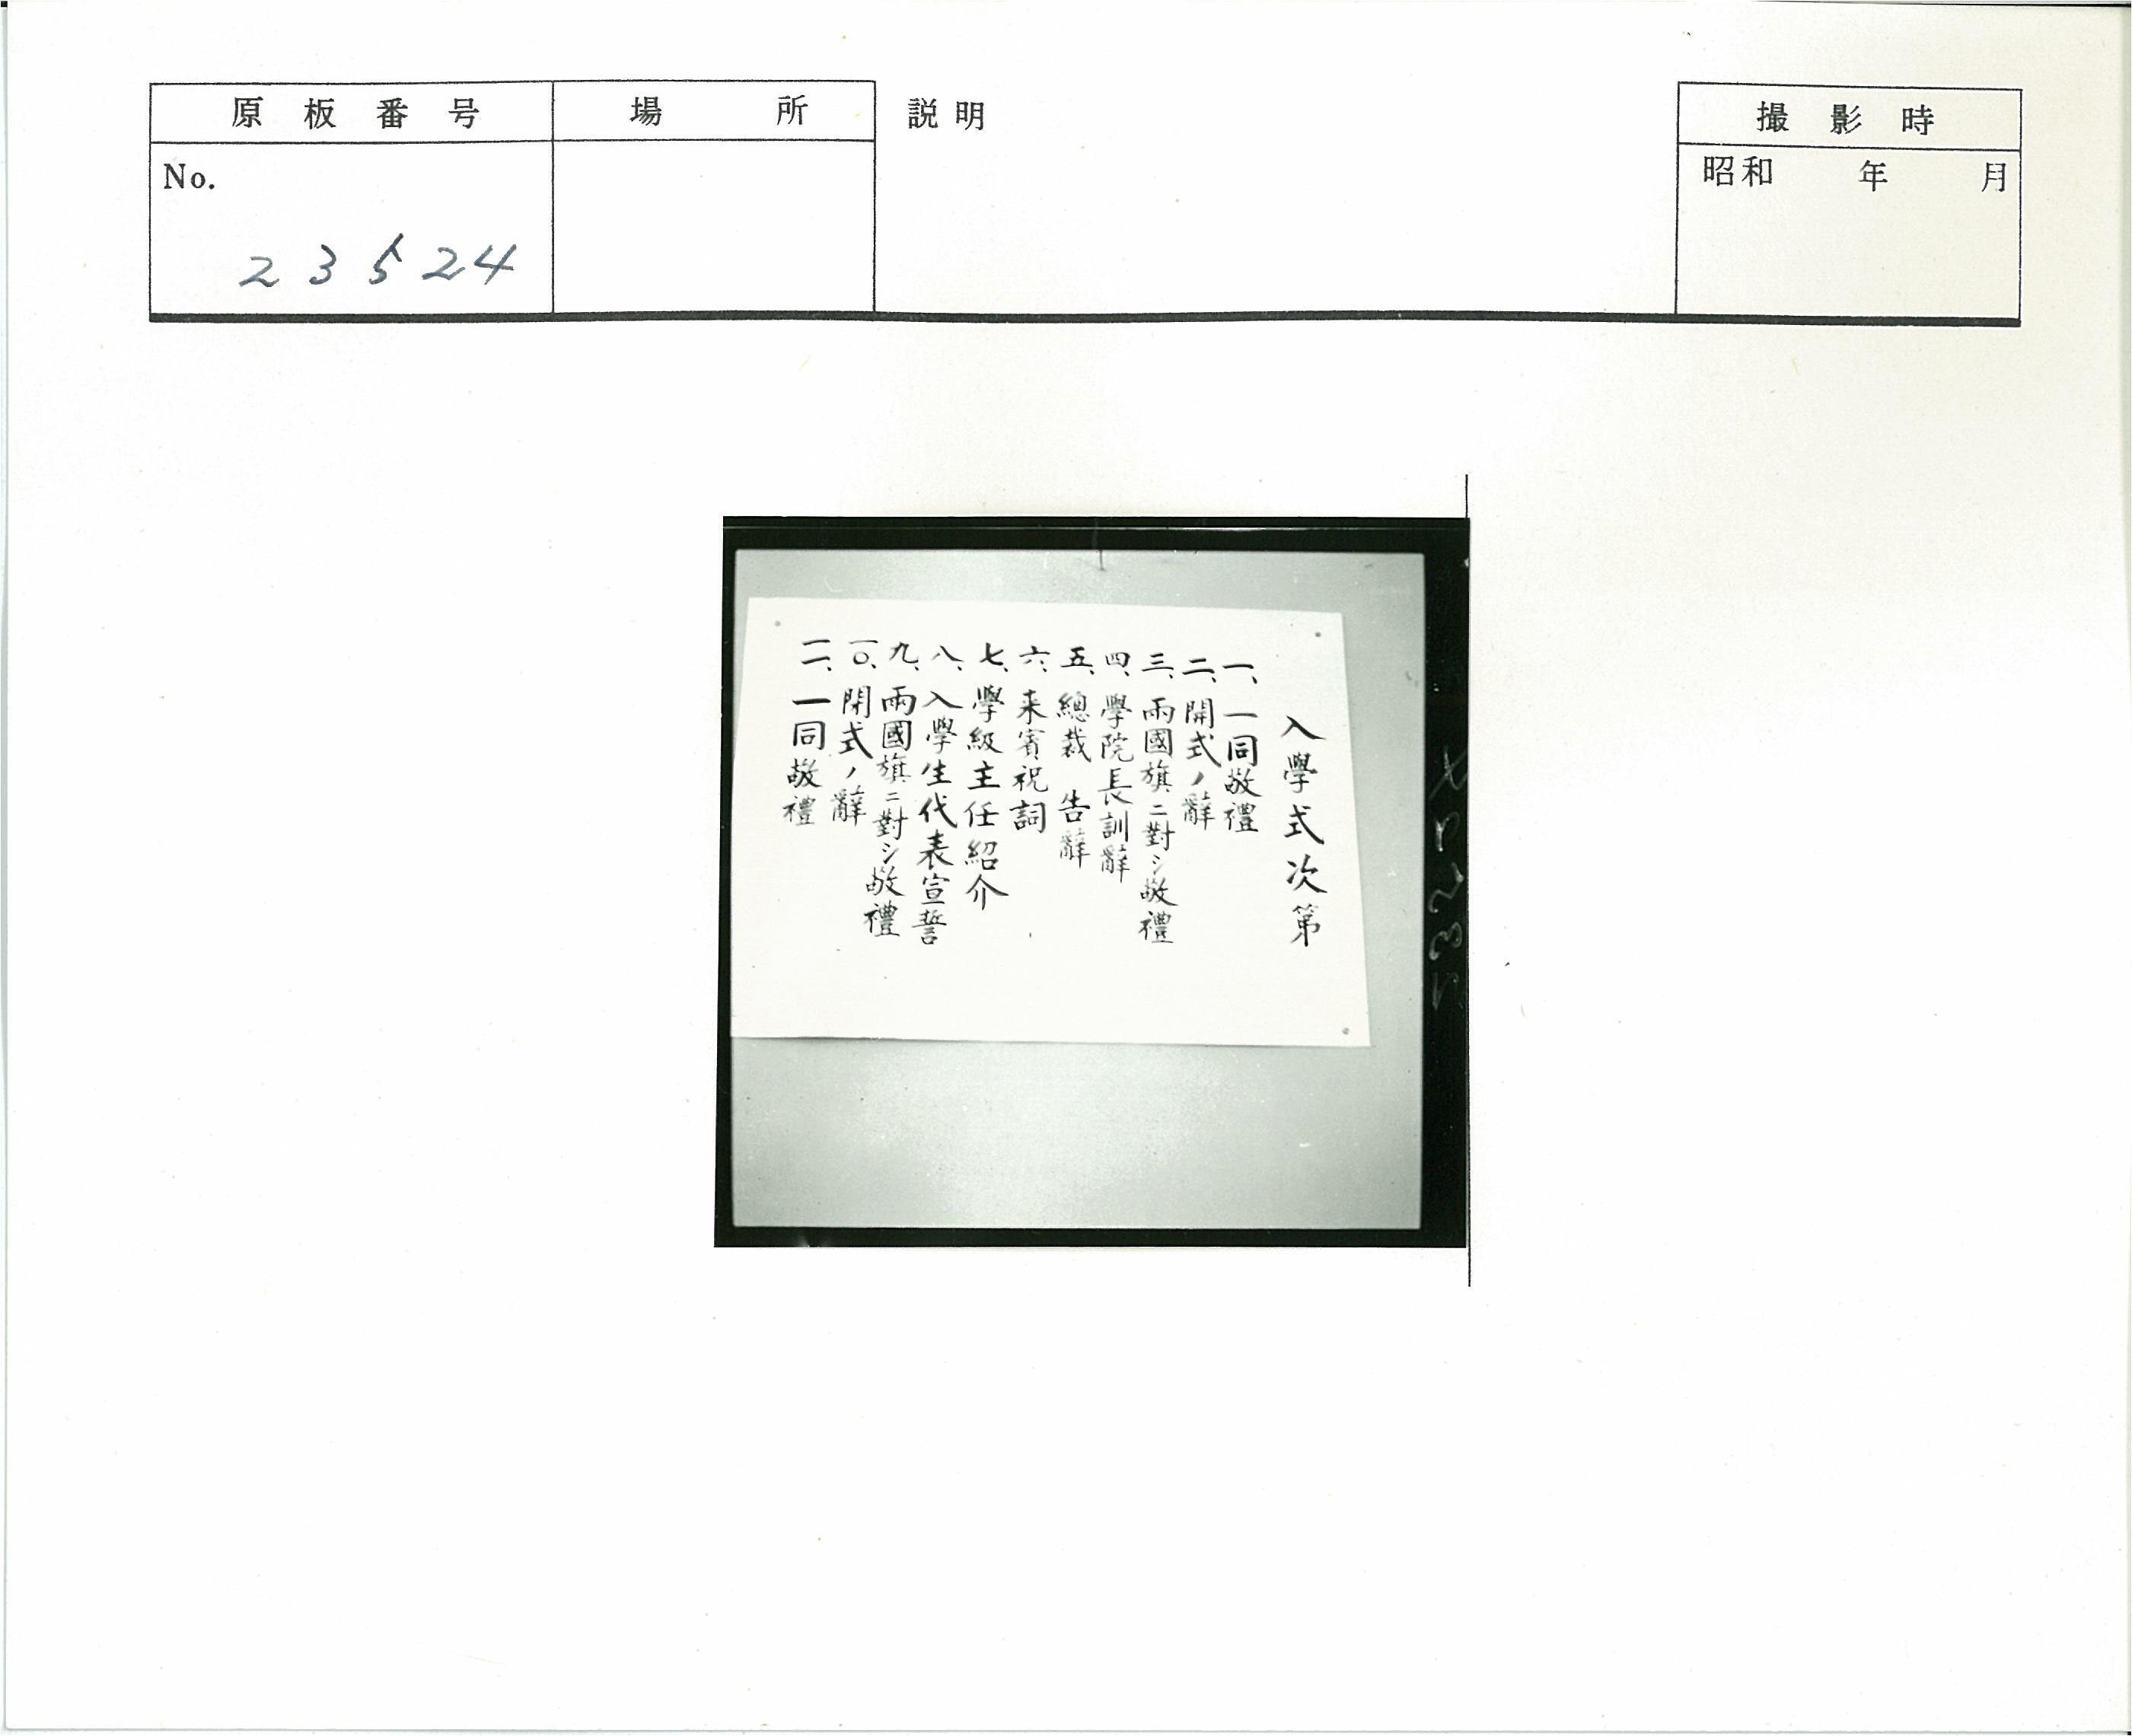 原板番号
No.
23524
場所
説明
撮影時
昭和 年 月
入學式次第
一、一同敬禮
二、開式ノ辭
三、兩國旗ニ對シ敬禮
四、學院長訓辭
五、總裁 告辭
六、来賓祝詞
七、學級主任紹介
八、入學生代表宣誓
九、兩國旗ニ對シ敬禮
一〇、閉式ノ辭
一一、一同敬禮